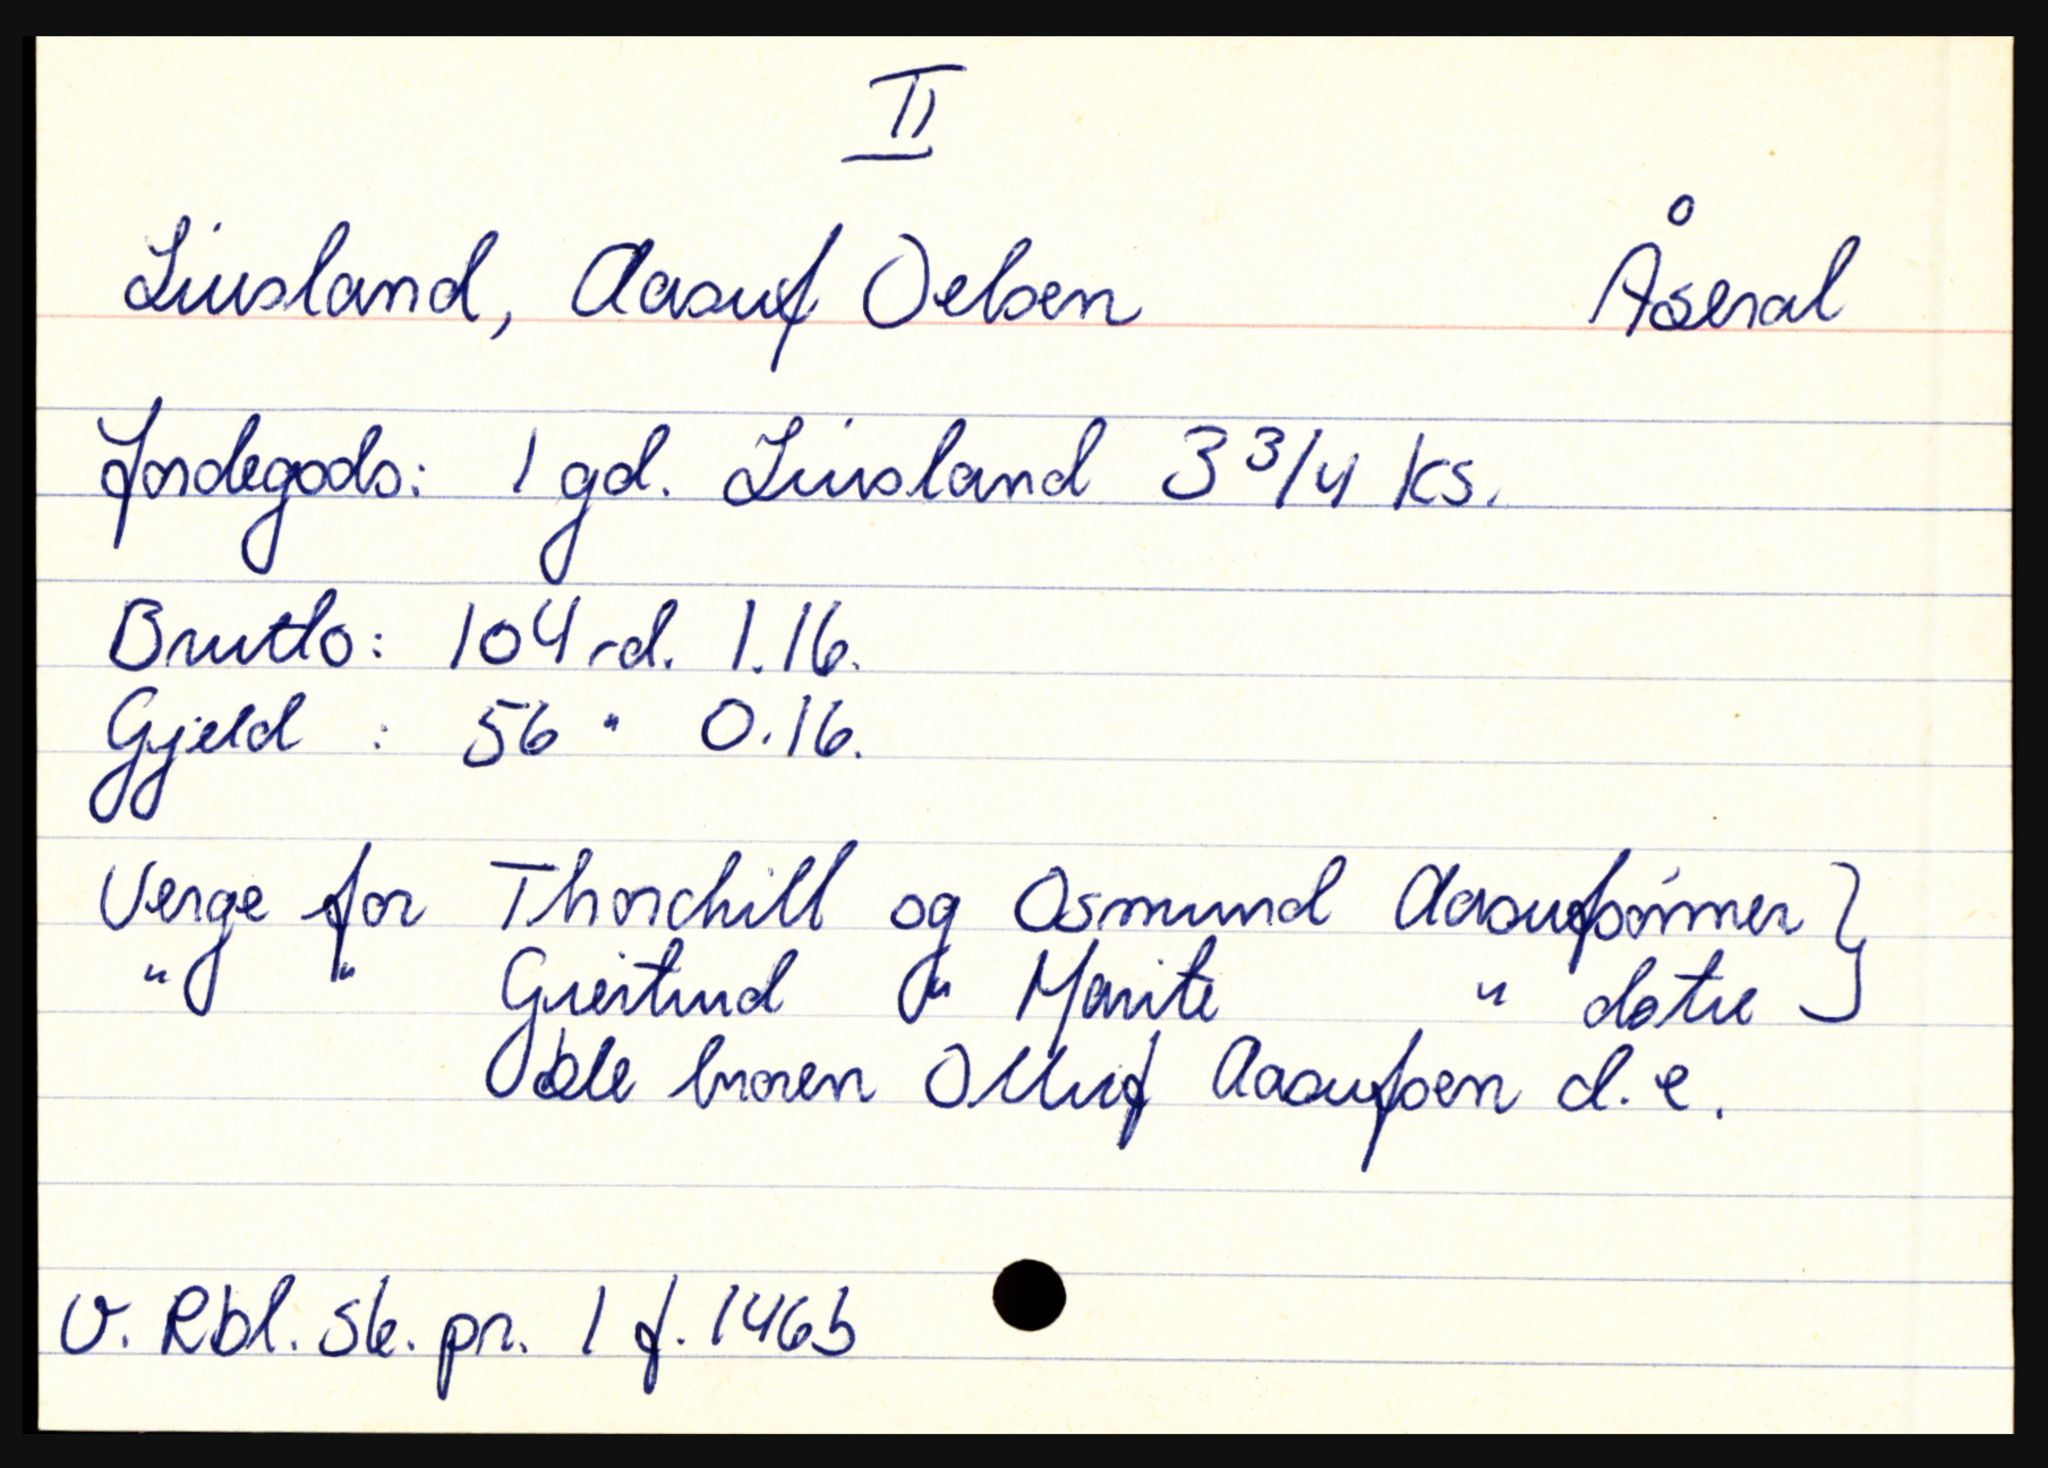 II
Liusland, Aasuf Oelsen Åseral
Jordegods: 1 gd. Liusland 3 3/4 ks.
Brutto: 104 rd. 1.16.
Gjeld : 56 " 0.16.
Verge for Thorchill og Osmund Aasufsønner }
" " Giertrud " Marite " døtre }
ble broren Olluf Aasufsen d.e.
V. Rbl. sk. pr. 1 f. 146b